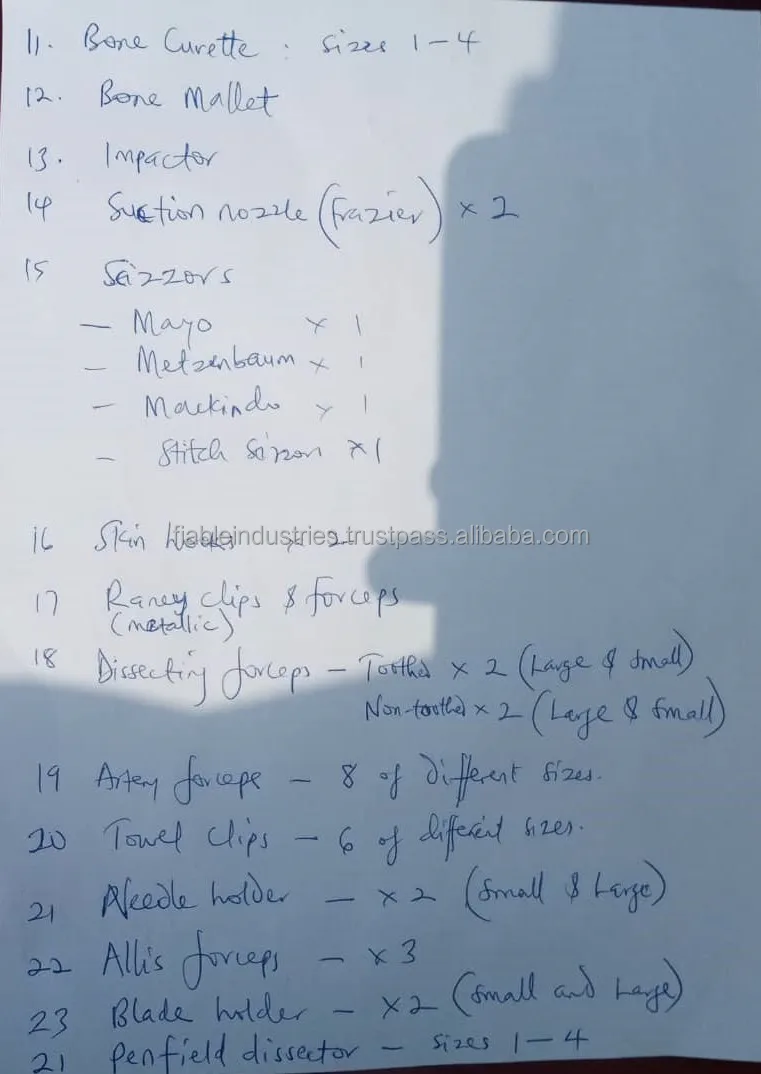 11. Bone Curette : sizes 1-4
12. Bone Mallet
13. Impactor
14 Suction nozzle (frazier) x 2
15 Scizzors
— Mayo x 1
— Metzenbaum x 1
— Mackindo x 1
— Stitch Scizzors x 1
16 Skin hooks x 2
fjableindustries.trustpass.alibaba.com
17 Raney clips & forceps
(metallic)
18 Dissecting forceps — Toothed x 2 (Large & small)
Non-toothed x 2 (Large & small)
19 Artery forceps — 8 of different sizes.
20 Towel clips — 6 of different sizes.
21 Needle holder — x 2 (small & Large)
22 Allis forceps — x 3
23 Blade holder — x 2 (small and Large)
21 Penfield dissector — sizes 1-4